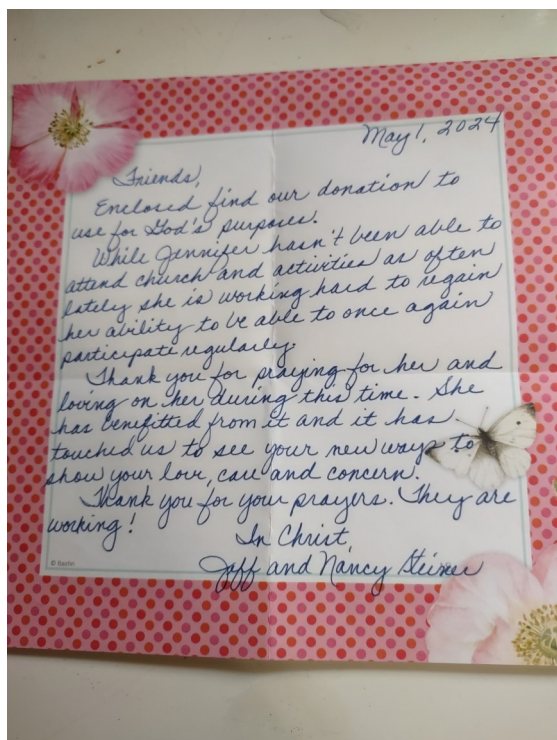 May 1, 2024
Friends,
Enclosed find our donation to
use for God's purposes.
While Jennifer hasn't been able to
attend church and activities as often
lately she is working hard to regain
her ability to be able to once again
participate regularly.
Thank you for praying for her and
loving on her during this time. She
has benefitted from it and it has
touched us to see your new ways to
show your love, care and concern.
Thank you for your prayers. They are
working!
In Christ,
Jeff and Nancy Steiner